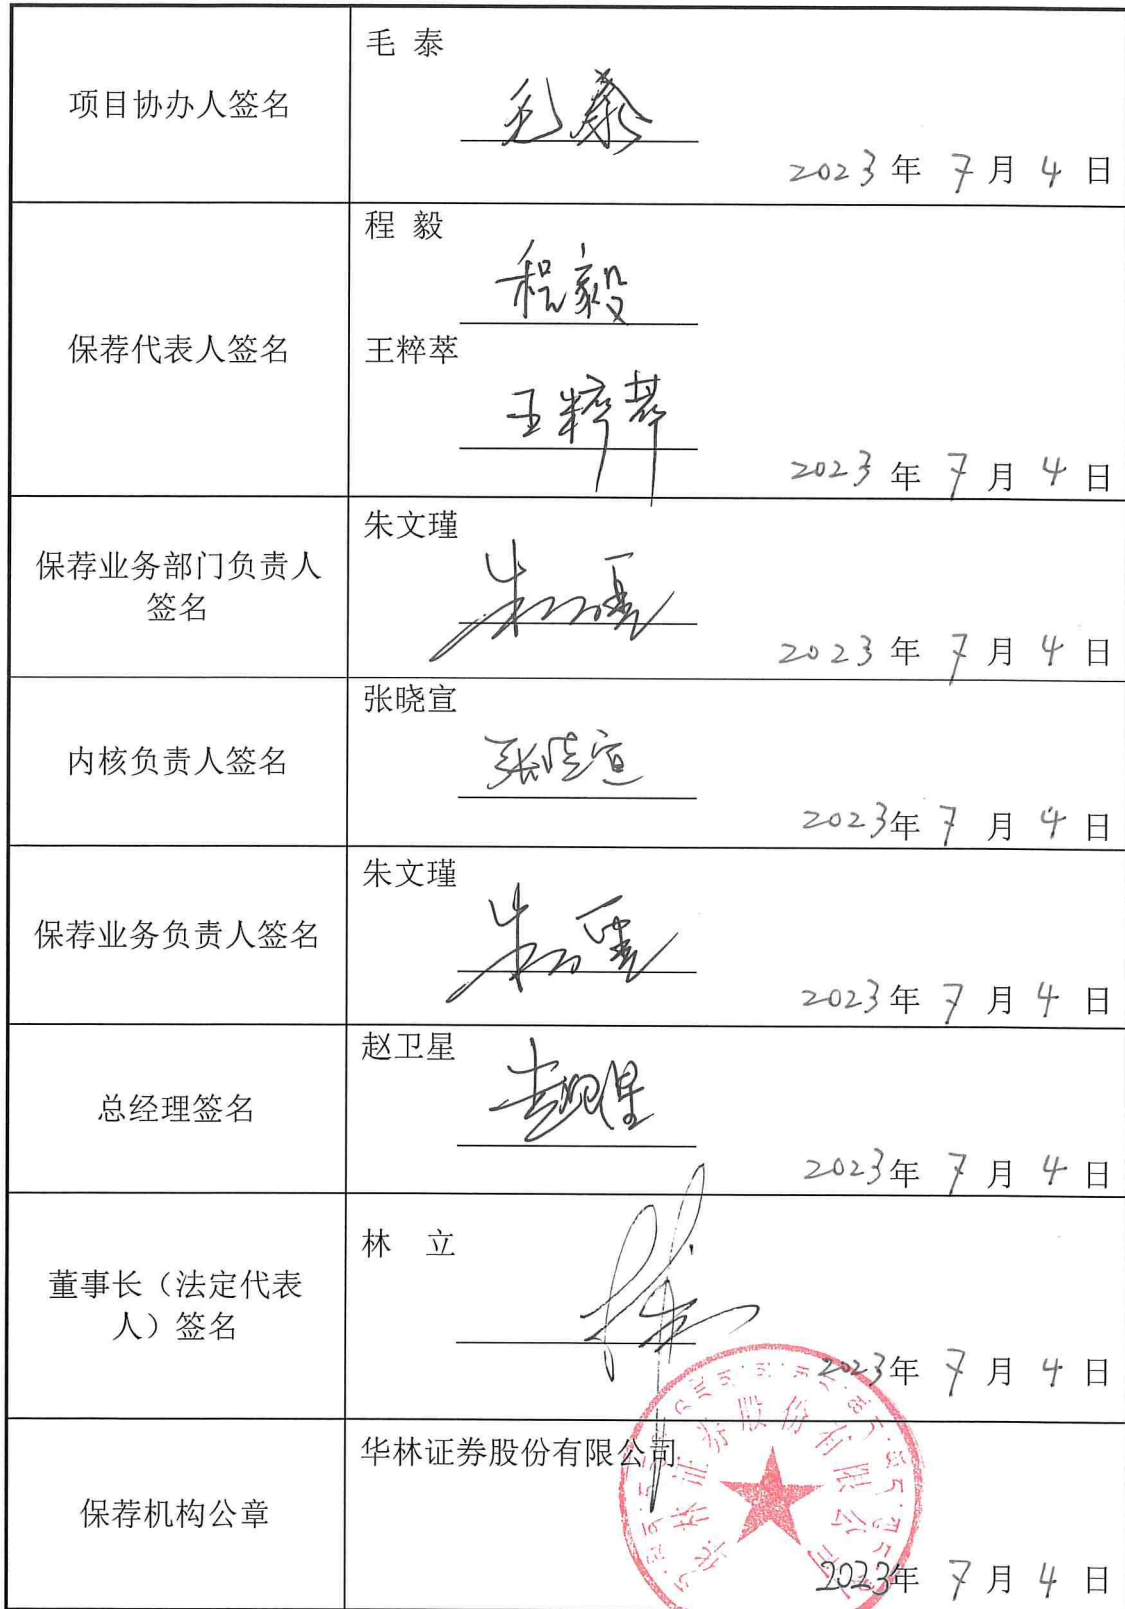 项目协办人签名
毛 泰
毛泰
2023年 7月 4日
保荐代表人签名
程 毅
程毅
王粹萃
王粹萃
2023年 7月 4日
保荐业务部门负责人
签名
朱文瑾
朱文瑾
2023年 7月 4日
内核负责人签名
张晓宣
张晓宣
2023年 7月 4日
保荐业务负责人签名
朱文瑾
朱文瑾
2023年 7月 4日
总经理签名
赵卫星
赵卫星
2023年 7月 4日
董事长（法定代表
人）签名
林 立
2023年 7月 4日
保荐机构公章
华林证券股份有限公司
华林证券股份有限公司
2023年 7月 4日